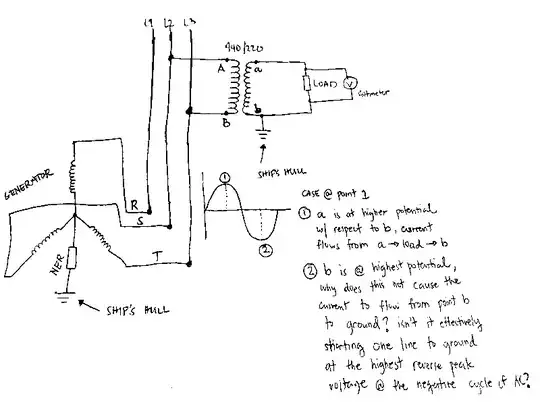 L1 L2 L3
440/220
A
a
LOAD
V
Voltmeter
B
b
SHIP'S HULL
GENERATOR
R
S
T
NER
SHIP'S HULL
1
2
CASE @ point 1
1 a is at higher potential
w/ respect to b, current
flows from a → load → b
2 b is @ highest potential,
why does this not cause the
current to flow from point b
to ground? isn't it effectively
shorting one line to ground
at the highest reverse peak
voltage @ the negative cycle of AC?